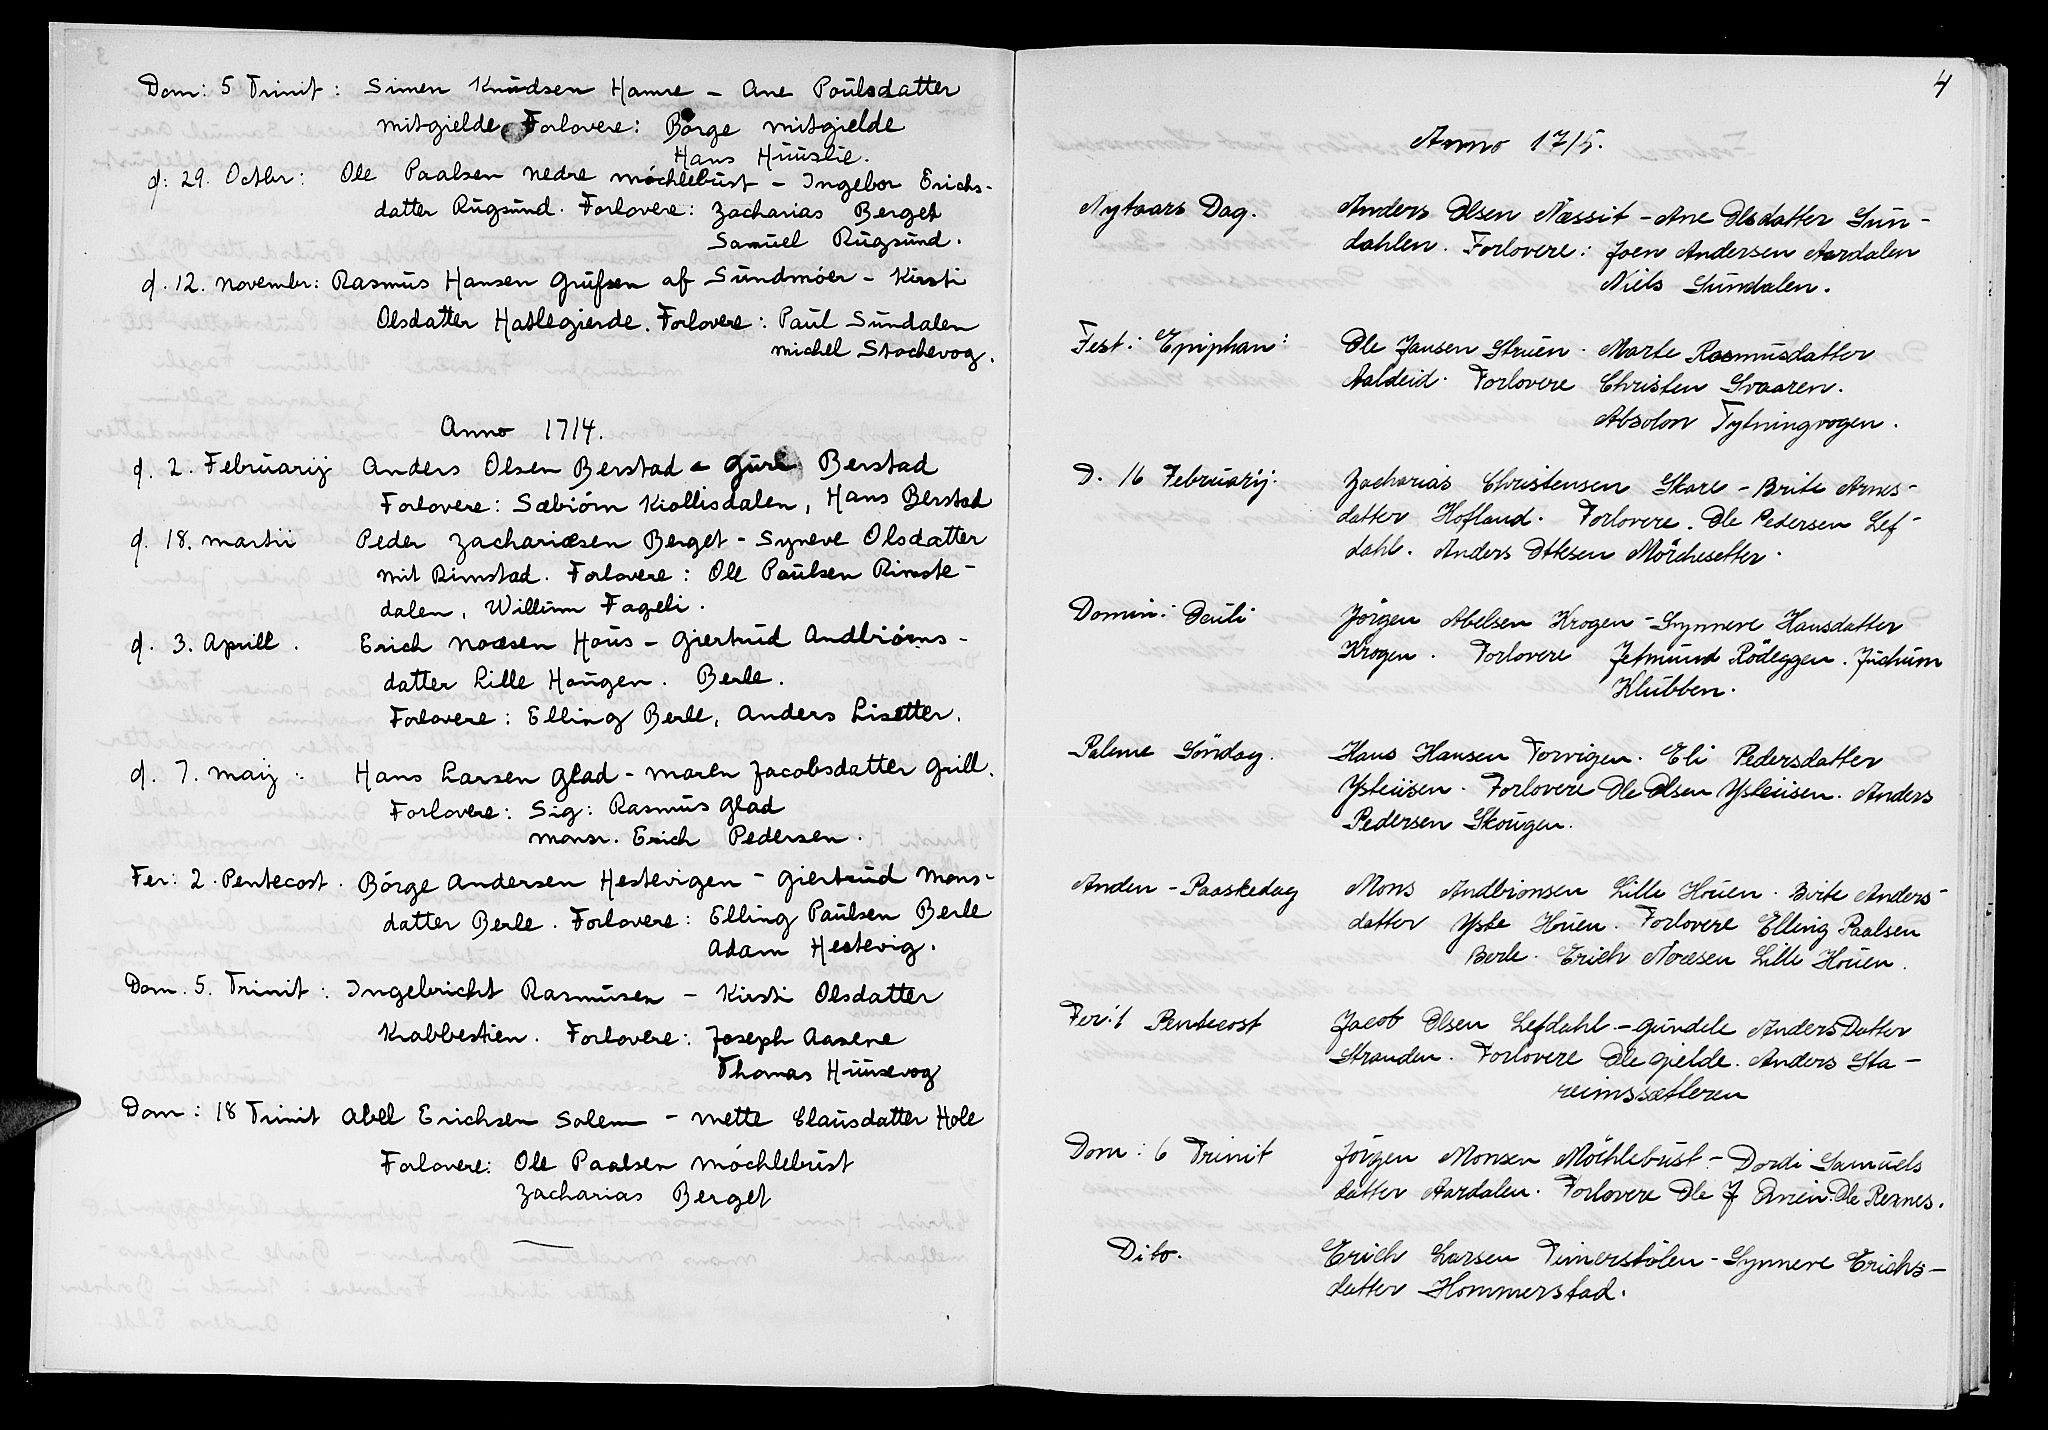 Dom: 5 Trinit: Simen Knudsen Hamre - Ane Poulsdatter
mitgielde Forlovere: Børge mitgielde
Hans Huuslie.
d: 29. Octbr: Ole Paalsen nedre møchlebust - Ingebor Erichs-
datter Rugsund. Forlovere: Zacharias Berget
Samuel Rugsund.
d. 12. novembr: Rasmus Hansen Gufsen af Sundmøer - Kirsti
Olsdatter Haslegierde. Forlovere: Paul Sundalen
michel Stochevog.
Anno 1714.
d. 2. Februarij Anders Olsen Berstad - Guri Berstad
Forlovere: Sæbiørn Kiollisdalen, Hans Berstad
d. 18. martii Peder Zachariæsen Berget - Syneve Olsdatter
mit Rimstad. Forlovere: Ole Paulsen Rimste-
dalen, Willum Fageli.
d. 3. Aprill. Erich Noæsen Hous - Giertrud Andbiørns-
datter Lille Hougen. Berle.
Forlovere: Elling Berle, Anders Lisetter.
d. 7. maij: Hans Larsen Glad - maren Jacobsdatter Grill.
Forlovere: Sig: Rasmus Glad
monsr. Erich Pedersen.
Fer: 2. Pentecost. Børge Andersen Hestevigen - Giertrud Mons-
datter Berle. Forlovere: Elling Paulsen Berle
Adam Hestevig.
Dom. 5. Trinit: Ingebricht Rasmusen - Kirsti Olsdatter
Krabbestien. Forlovere: Joseph Aasene
Thomas Huusevog
Dom: 18 Trinit Abel Erichsen Solem - Mette Clausdatter Hole
Forlovere: Ole Paalsen Møchlebust
Zacharias Berget
4
Anno 1715.
Nytaars Dag. Anders Olsen Næssit - Ane Olsdatter Sun-
dahlen. Forlovere: Joen Andersen Aardalen
Niels Sundalen.
Fest: Epiphan: Ole Jansen Struen. Marte Rasmusdatter
Aaldeid. Forlovere Christen Svaaren.
Absolon Tytningvogen.
D. 16 Februarij. Zacharias Christensen Skare - Brite Arnes-
datter Hofland. Forlovere. Ole Pedersen Lef-
dahl. Anders Ottesen Mörchesetter.
Domin: Pauli Jörgen Abelsen Krogen - Synneve Hansdatter
Krogen. Forlovere Jetmund Rödeggen. Juchum
Klubben.
Palme Söndag. Hans Hansen Torvigen. Eli Pedersdatter
Ysteüsen. Forlovere Ole Olsen Ysteüsen. Anders
Pedersen Skougen.
Anden - Paaskedag Mons Andbionsen Lille Houen. Brite Anders-
datter Yste Houen. Forlovere Elling Paalsen
Berle. Erich Noæsen Lille Houen.
Fer: 1 Pentecost Jacob Olsen Lefdahl - Gundele AndersDatter
Stranden. Forlovere Ole Gielde. Anders Sta-
reimssætteren
Dom: 6 Trinit Jörgen Monsen Möchlebust - Dordi Samuels
datter Aardalen. Forlovere Ole J Ervien. Ole Rexnes.
Dito. Erich Larsen Timerstölen - Synneve Erichs-
datter Hommerstad.